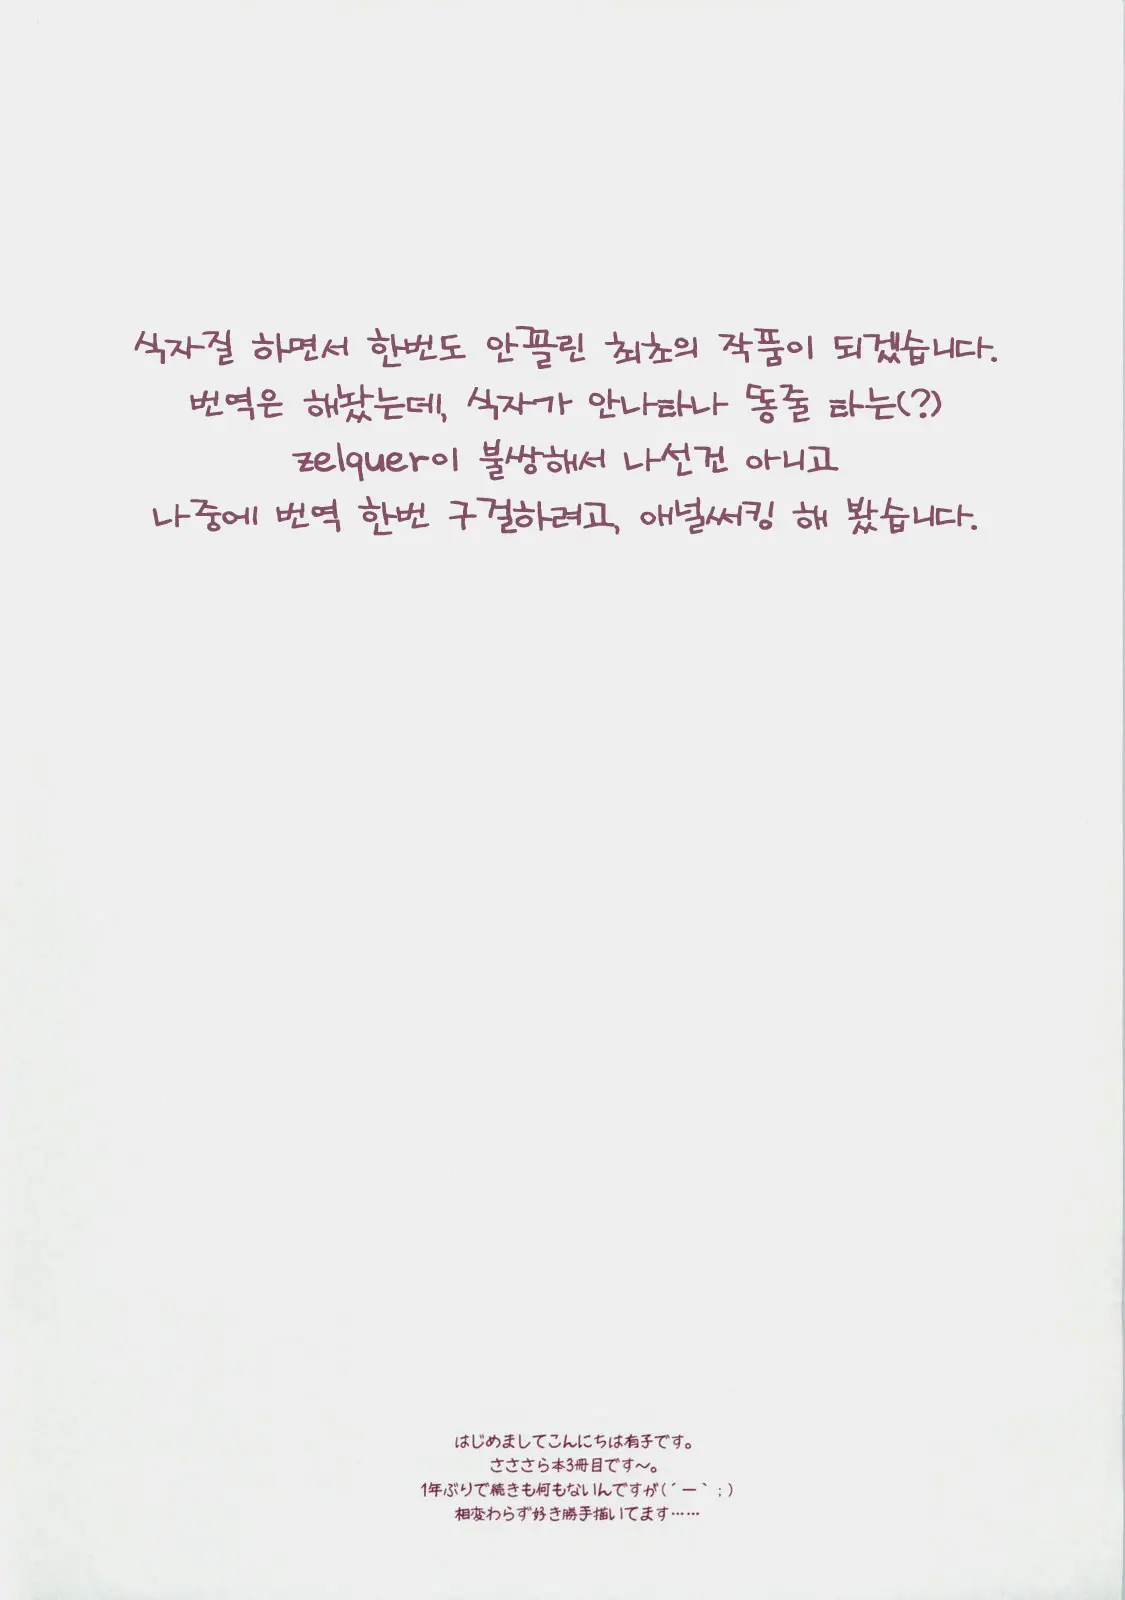 식자질 하면서 한번도 안꼴린 최초의 작품이 되겠습니다.
번역은 해놨는데, 식자가 안나타나 똥줄 타는(?)
zelquer이 불쌍해서 나선건 아니고
나중에 번역 한번 구걸하려고, 애널써킹 해 봤습니다.
はじめましてこんにちは有子です。
さささら本3冊目です～。
1年ぶりで続きも何もないんですが(´ー｀;)
相変わらず好き勝手描いてます……